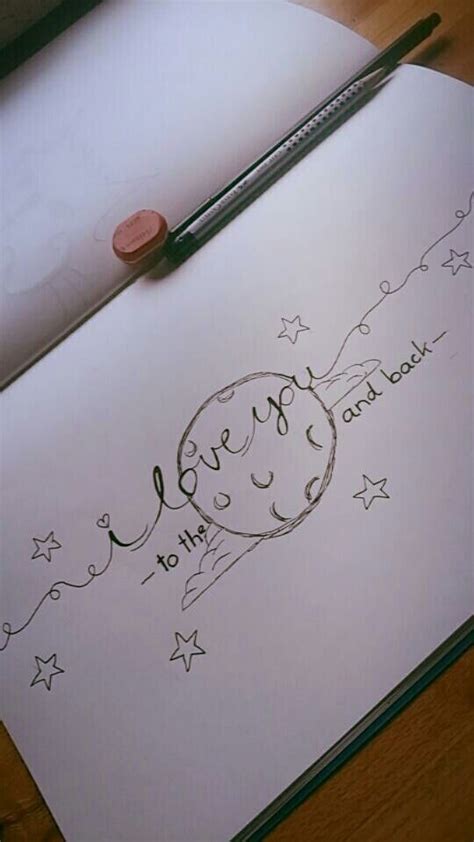 i love you
- to the
and back -